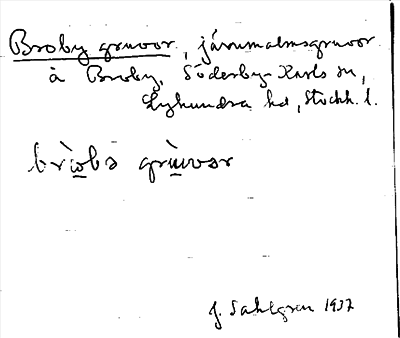 Broby gruvor, järnmalmsgruvor
å Broby, Söderby-Karls sn,
Lyhundra hd, Stockh. l.
brὼbə grùvər
J. Sahlgren 1937